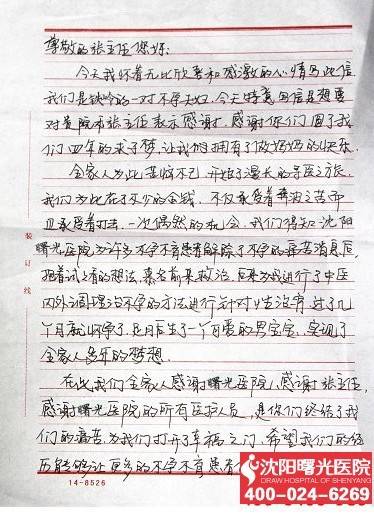 尊敬的张主任您好:
今天我怀着无比欣喜和感激的心情写此信
我们是铁岭的一对不孕夫妇.今天特意写信是想要
对贵院市张主任表示感谢,感谢你们圆了我
们四年的求子梦,让我们拥有了做妈妈的快乐.
全家人为此苦恼不已,开始了漫长的寻医之旅,
我们为此花了不少的金钱,不仅承受着
且承受着打击,一次偶然的机会,我们得知沈阳
曙光医院为许多不孕不育患者解除了不孕的痛苦消息后,
抱着试之看的想法,慕名前来救治,医生为我进行了中医
内外调理治不孕的方法进行针对性治疗.过了几
个月就怀孕了.五月底生了一个可爱的男宝宝,实现了
全家人多年的梦想.
在此我们全家人感谢曙光医院,感谢张主任,
感谢曙光医院的所有医护人员,是你们终结了我
们的痛苦,为我们打开了幸福之门,希望我们的经
历能够让更多的不孕不育患者
装订线
14-8526
沈阳曙光医院
DRAW HOSPITAL OF SHENYANG
400-024-6269